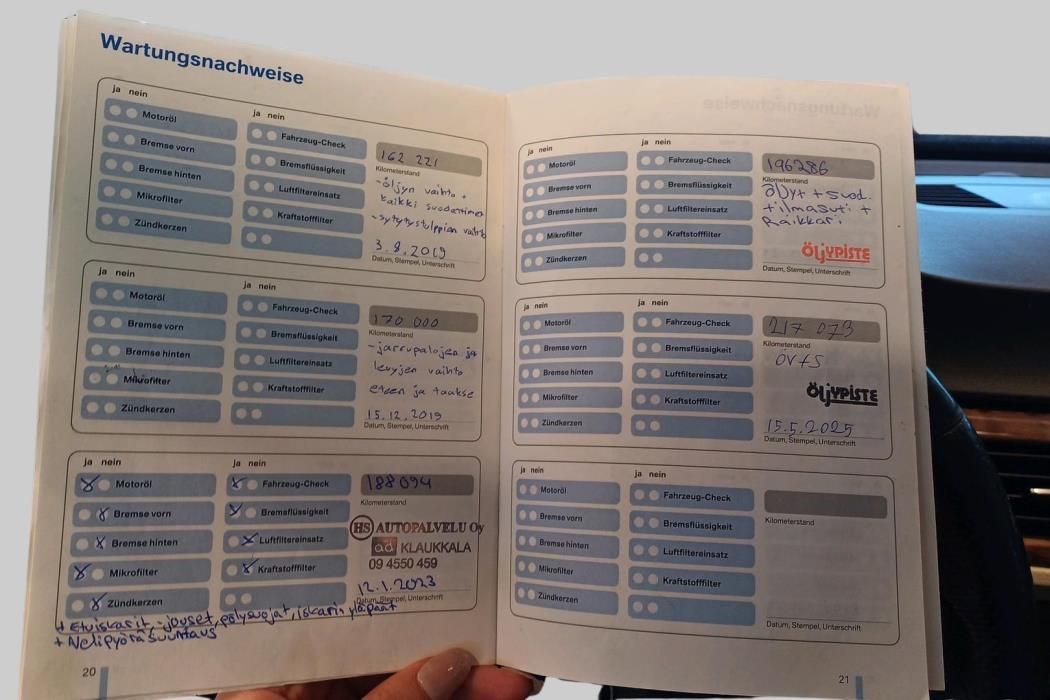 Wartungsnachweise
ja nein
ja nein
Motoröl
Fahrzeug-Check
162 221
Bremse vorn
Bremsflüssigkeit
Kilometerstand
Bremse hinten
Luftfiltereinsatz
-öljyn vaihto +
kaikki suodattimet
Mikrofilter
Kraftstofffilter
-sytytystulppien vaihto
Zündkerzen
3.9.2019
Datum, Stempel, Unterschrift
ja nein
ja nein
Motoröl
Fahrzeug-Check
170 000
Bremse vorn
Bremsflüssigkeit
Kilometerstand
Bremse hinten
Luftfiltereinsatz
-jarrupalojen ja
levyjen vaihto
Mikrofilter
Kraftstofffilter
eteen ja taakse
Zündkerzen
15.12.2019
Datum, Stempel, Unterschrift
ja nein
ja nein
Motoröl
Fahrzeug-Check
188094
Bremse vorn
Bremsflüssigkeit
Kilometerstand
Bremse hinten
Luftfiltereinsatz
HS AUTOPALVELU Oy
ad KLAUKKALA
Mikrofilter
Kraftstofffilter
09 4550 459
Zündkerzen
12.1.2023
Datum, Stempel, Unterschrift
+ Etuiskarit, -jouset, pölysuojat, iskarin yläpäät
+ Nelipyöräsuuntaus
20
ja nein
ja nein
Motoröl
Fahrzeug-Check
196286
Bremse vorn
Bremsflüssigkeit
Kilometerstand
Bremse hinten
Luftfiltereinsatz
Öljyt + suod.
+ilmasuti +
Mikrofilter
Kraftstofffilter
Raikkari
Zündkerzen
ÖljYPISTE
Datum, Stempel, Unterschrift
ja nein
ja nein
Motoröl
Fahrzeug-Check
217 073
Bremse vorn
Bremsflüssigkeit
Kilometerstand
Bremse hinten
Luftfiltereinsatz
ÖV+S
Mikrofilter
Kraftstofffilter
ÖljYPISTE
Zündkerzen
15.5.2025
Datum, Stempel, Unterschrift
ja nein
ja nein
Motoröl
Fahrzeug-Check
Bremse vorn
Bremsflüssigkeit
Kilometerstand
Bremse hinten
Luftfiltereinsatz
Mikrofilter
Kraftstofffilter
Zündkerzen
Datum, Stempel, Unterschrift
21